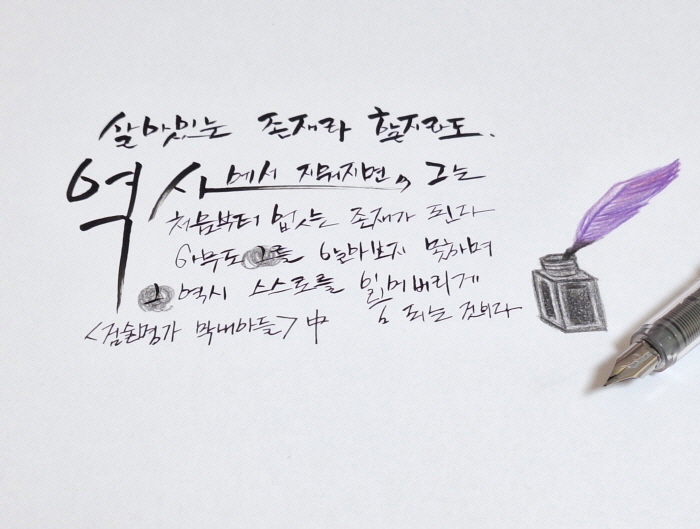 살아있는 존재라 할지라도.
역사에서 지워지면, 그는
처음부터 없는 존재가 된다
아무도 그를 알아보지 못하며
그 역시 스스로를 잃어버리게
되는 것이다
<검술명가 막내아들> 中